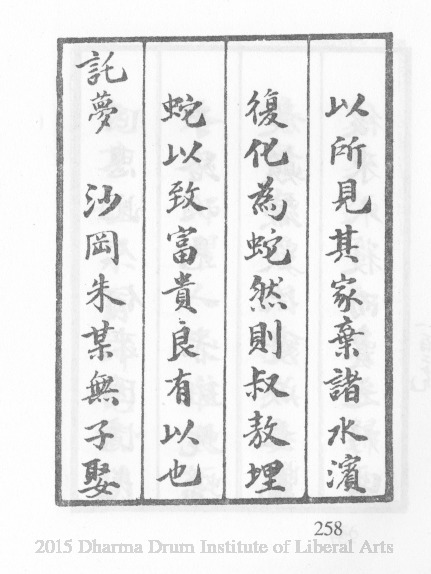 以所見其家棄諸水濱
復化為蛇然則叔敖埋
蛇以致富貴良有以也
託夢　沙岡朱某無子娶
258
2015 Dharma Drum Institute of Liberal Arts